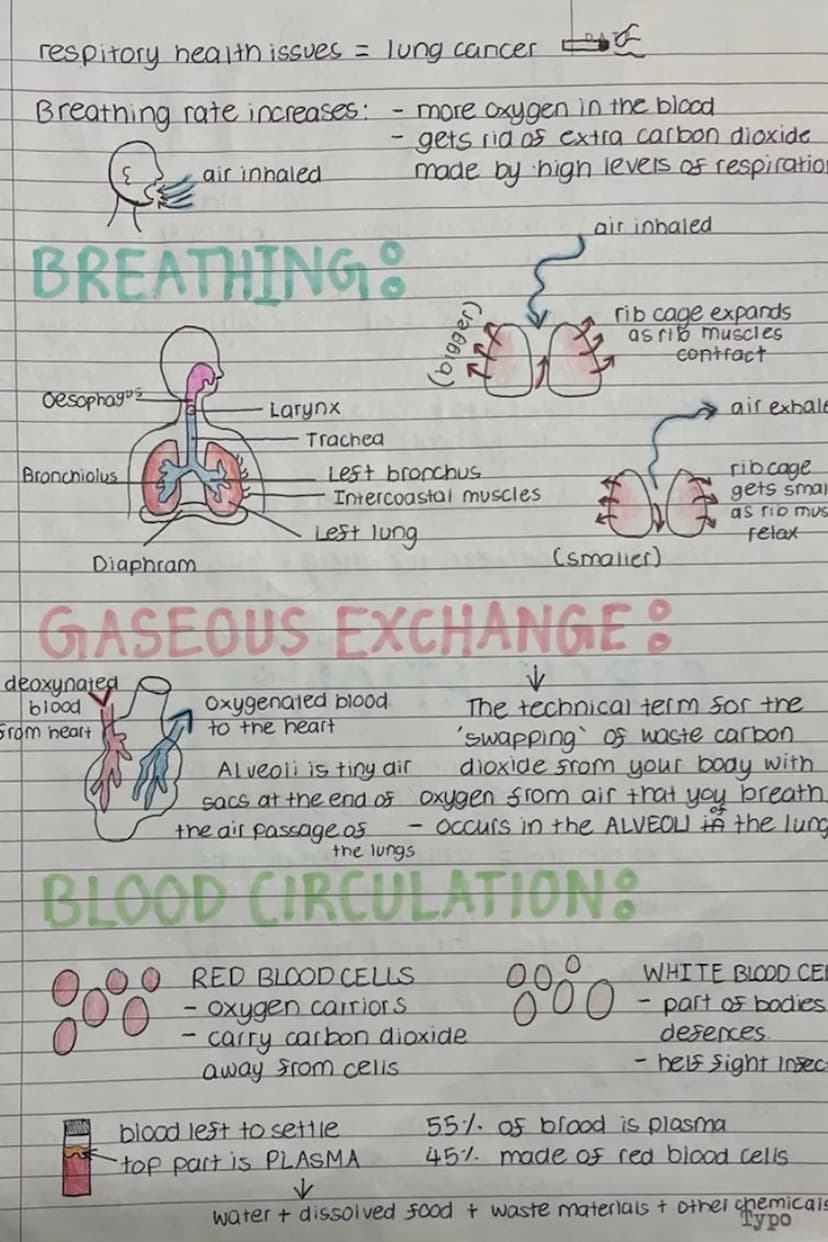 respitory health issues = lung cancer
Breathing rate increases: - more oxygen in the blood
- gets rid of extra carbon dioxide
made by high levels of respiratio
air inhaled
air inhaled
BREATHING:
(bigger)
rib cage expands
as rib muscles
contract
Oesophagus
Larynx
Trachea
Bronchiolus
Left bronchus
Intercoastal muscles
Left lung
Diaphram
air exhale
ribcage
gets smal
as rib mus
relax
(smaller)
GASEOUS EXCHANGE:
deoxynated
blood
from heart
Oxygenated blood
to the heart
Alveoli is tiny air
sacs at the end of
the air passage of
the lungs
The technical term for the
'swapping' of waste carbon
dioxide from your body with
oxygen from air that you breath
- occurs in the ALVEOLI in of the lung
BLOOD CIRCULATION:
RED BLOOD CELLS
- oxygen carriors
- carry carbon dioxide
away from cells
WHITE BLOOD CE
- part of bodies
defences
- help fight Infec
blood left to settle
top part is PLASMA
55% of blood is plasma
45% made of red blood cells
water + dissolved food + waste materials + other chemicals
Typo